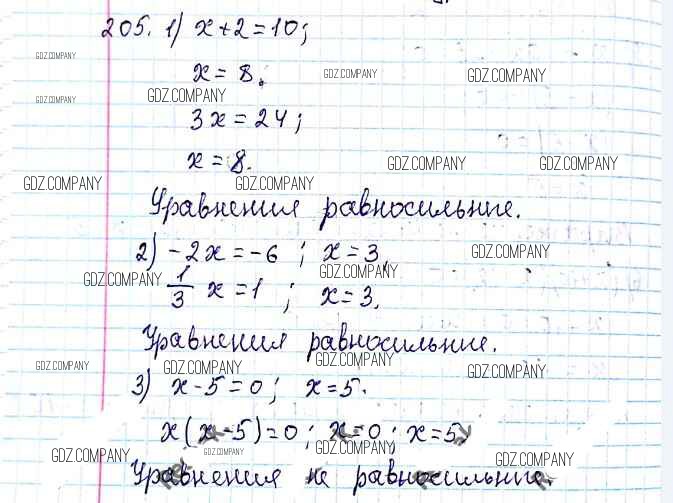 205. 1) x+2=10;
GDZ.COMPANY
x = 8. GDZ.COMPANY GDZ.COMPANY
GDZ.COMPANY GDZ.COMPANY
3x = 24;
x = 8. GDZ.COMPANY GDZ.COMPANY
GDZ.COMPANY GDZ.COMPANY
Уравнения равносильные.
2) -2x = -6 ; x = 3, GDZ.COMPANY
GDZ.COMPANY 1/3 x = 1 ; x = 3, GDZ.COMPANY
Уравнения равносильные.
GDZ.COMPANY GDZ.COMPANY GDZ.COMPANY GDZ.COMPANY
3) x-5=0; x=5.
x(x-5)=0; x=0; x=5,
GDZ.COMPANY GDZ.COMPANY GDZ.COMPANY GDZ.COMPANY
Уравнения не равносильные.